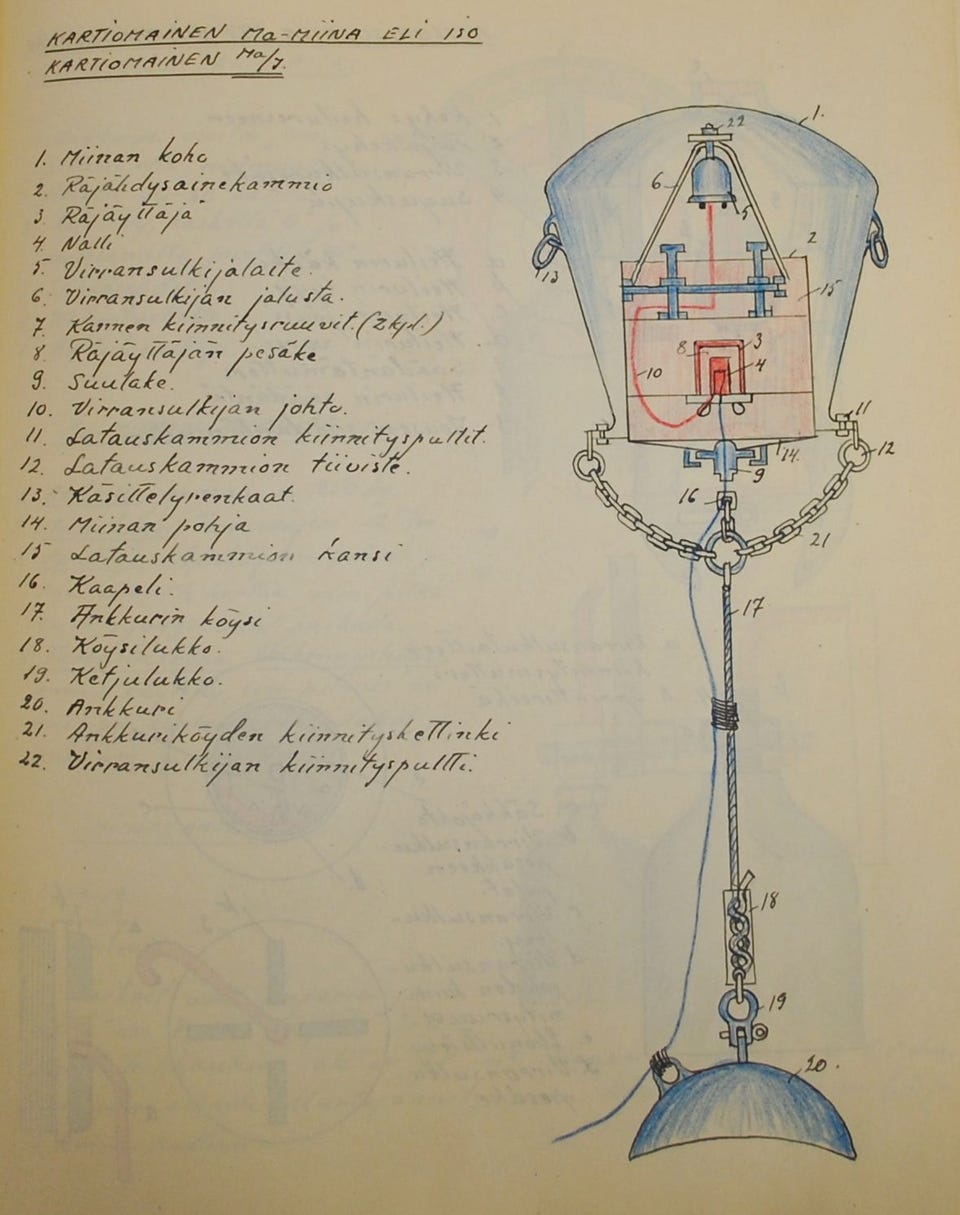 KARTIOMAINEN Ma-MIINA ELI ISO
KARTIOMAINEN Ma/I.
1. Miinan koho
2. Räjähdysainekammio
3. Räjäyttäjä
4. Nalli
5. Virransulkijalaite.
6. Virransulkijan jalusta.
7. Kannen kiinnitysruuvit. (2 kpl.)
8. Räjäyttäjän pesäke
9. Suulake.
10. Virransulkijan johto.
11. Latauskammion kiinnityspultit.
12. Latauskammion tiiviste.
13. Käsittelyrenkaat.
14. Miinan pohja
15 Latauskammion kansi
16. Kaapeli.
17. Ankkurin köysi
18. Köysilukko.
19. Ketjulukko.
20. Ankkuri
21. Ankkuriköyden kiinnityskettinki
22. Virransulkijan kiinnityspultti.
1.
22
6
5
2
13
15
8
3
4
10
11
12
14
9
16
21
17
18
19
20